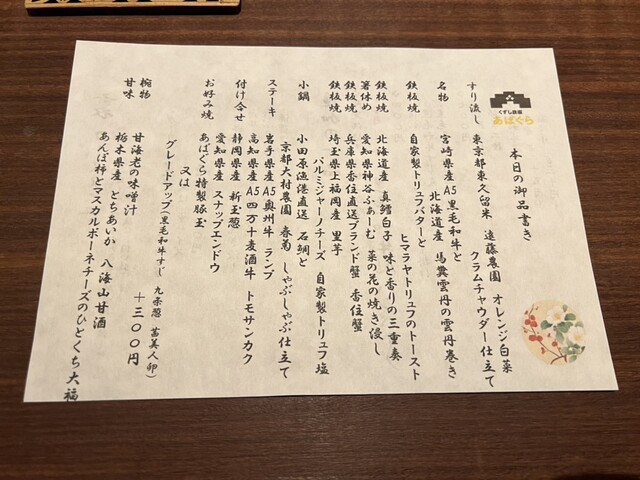 くずし鉄板
あばぐら
本日の御品書き
すり流し 東京都東久留米 遠藤農園 オレンジ白菜
クラムチャウダー仕立て
名物 宮崎県産A5黒毛和牛と
北海道産 馬糞雲丹の雲丹巻き
鉄板焼 自家製トリュフバターと
ヒマラヤトリュフのトースト
鉄板焼 北海道産 真鱈白子 味と香りの三重奏
箸休め 愛知県神谷ふぁーむ 菜の花の焼き浸し
鉄板焼 兵庫県香住直送ブランド蟹 香住蟹
鉄板焼 埼玉県上福岡産 里芋
パルミジャーノチーズ 自家製トリュフ塩
小鍋 小田原漁港直送 石鯛と
京都大村農園 春菊 しゃぶしゃぶ仕立て
ステーキ 岩手県産A5奥州牛 ランプ
高知県産A5四万十麦酒牛 トモサンカク
付け合せ 静岡県産 新玉葱
愛知県産 スナップエンドウ
お好み焼 あばぐら特製豚玉
又は
グレードアップ(黒毛和牛すじ 九条葱 茜美人卵)
+一三〇〇円
椀物 甘海老の味噌汁
甘味 栃木県産 とちあいか 八海山甘酒
あんぽ柿とマスカルポーネチーズのひとくち大福